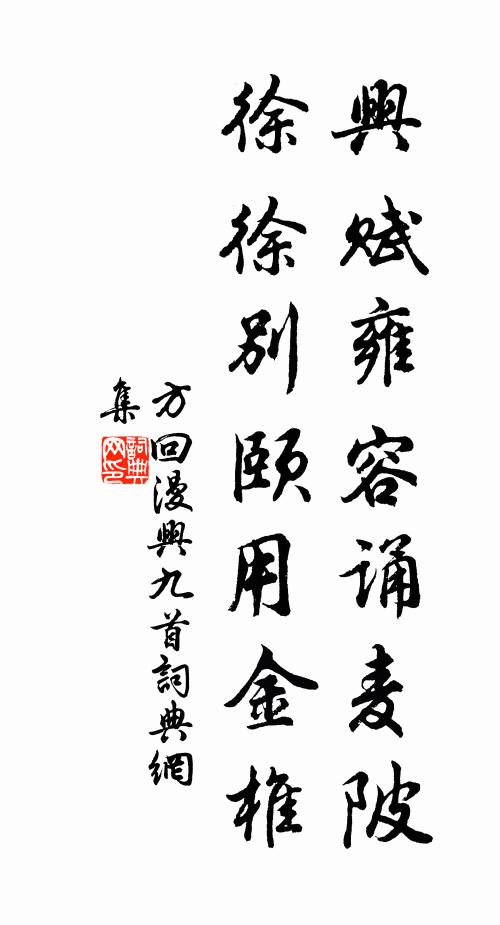 興賦雍容誦麦陂
徐徐別頤用金椎
方回漫興九首詞典網
集
詞典网印